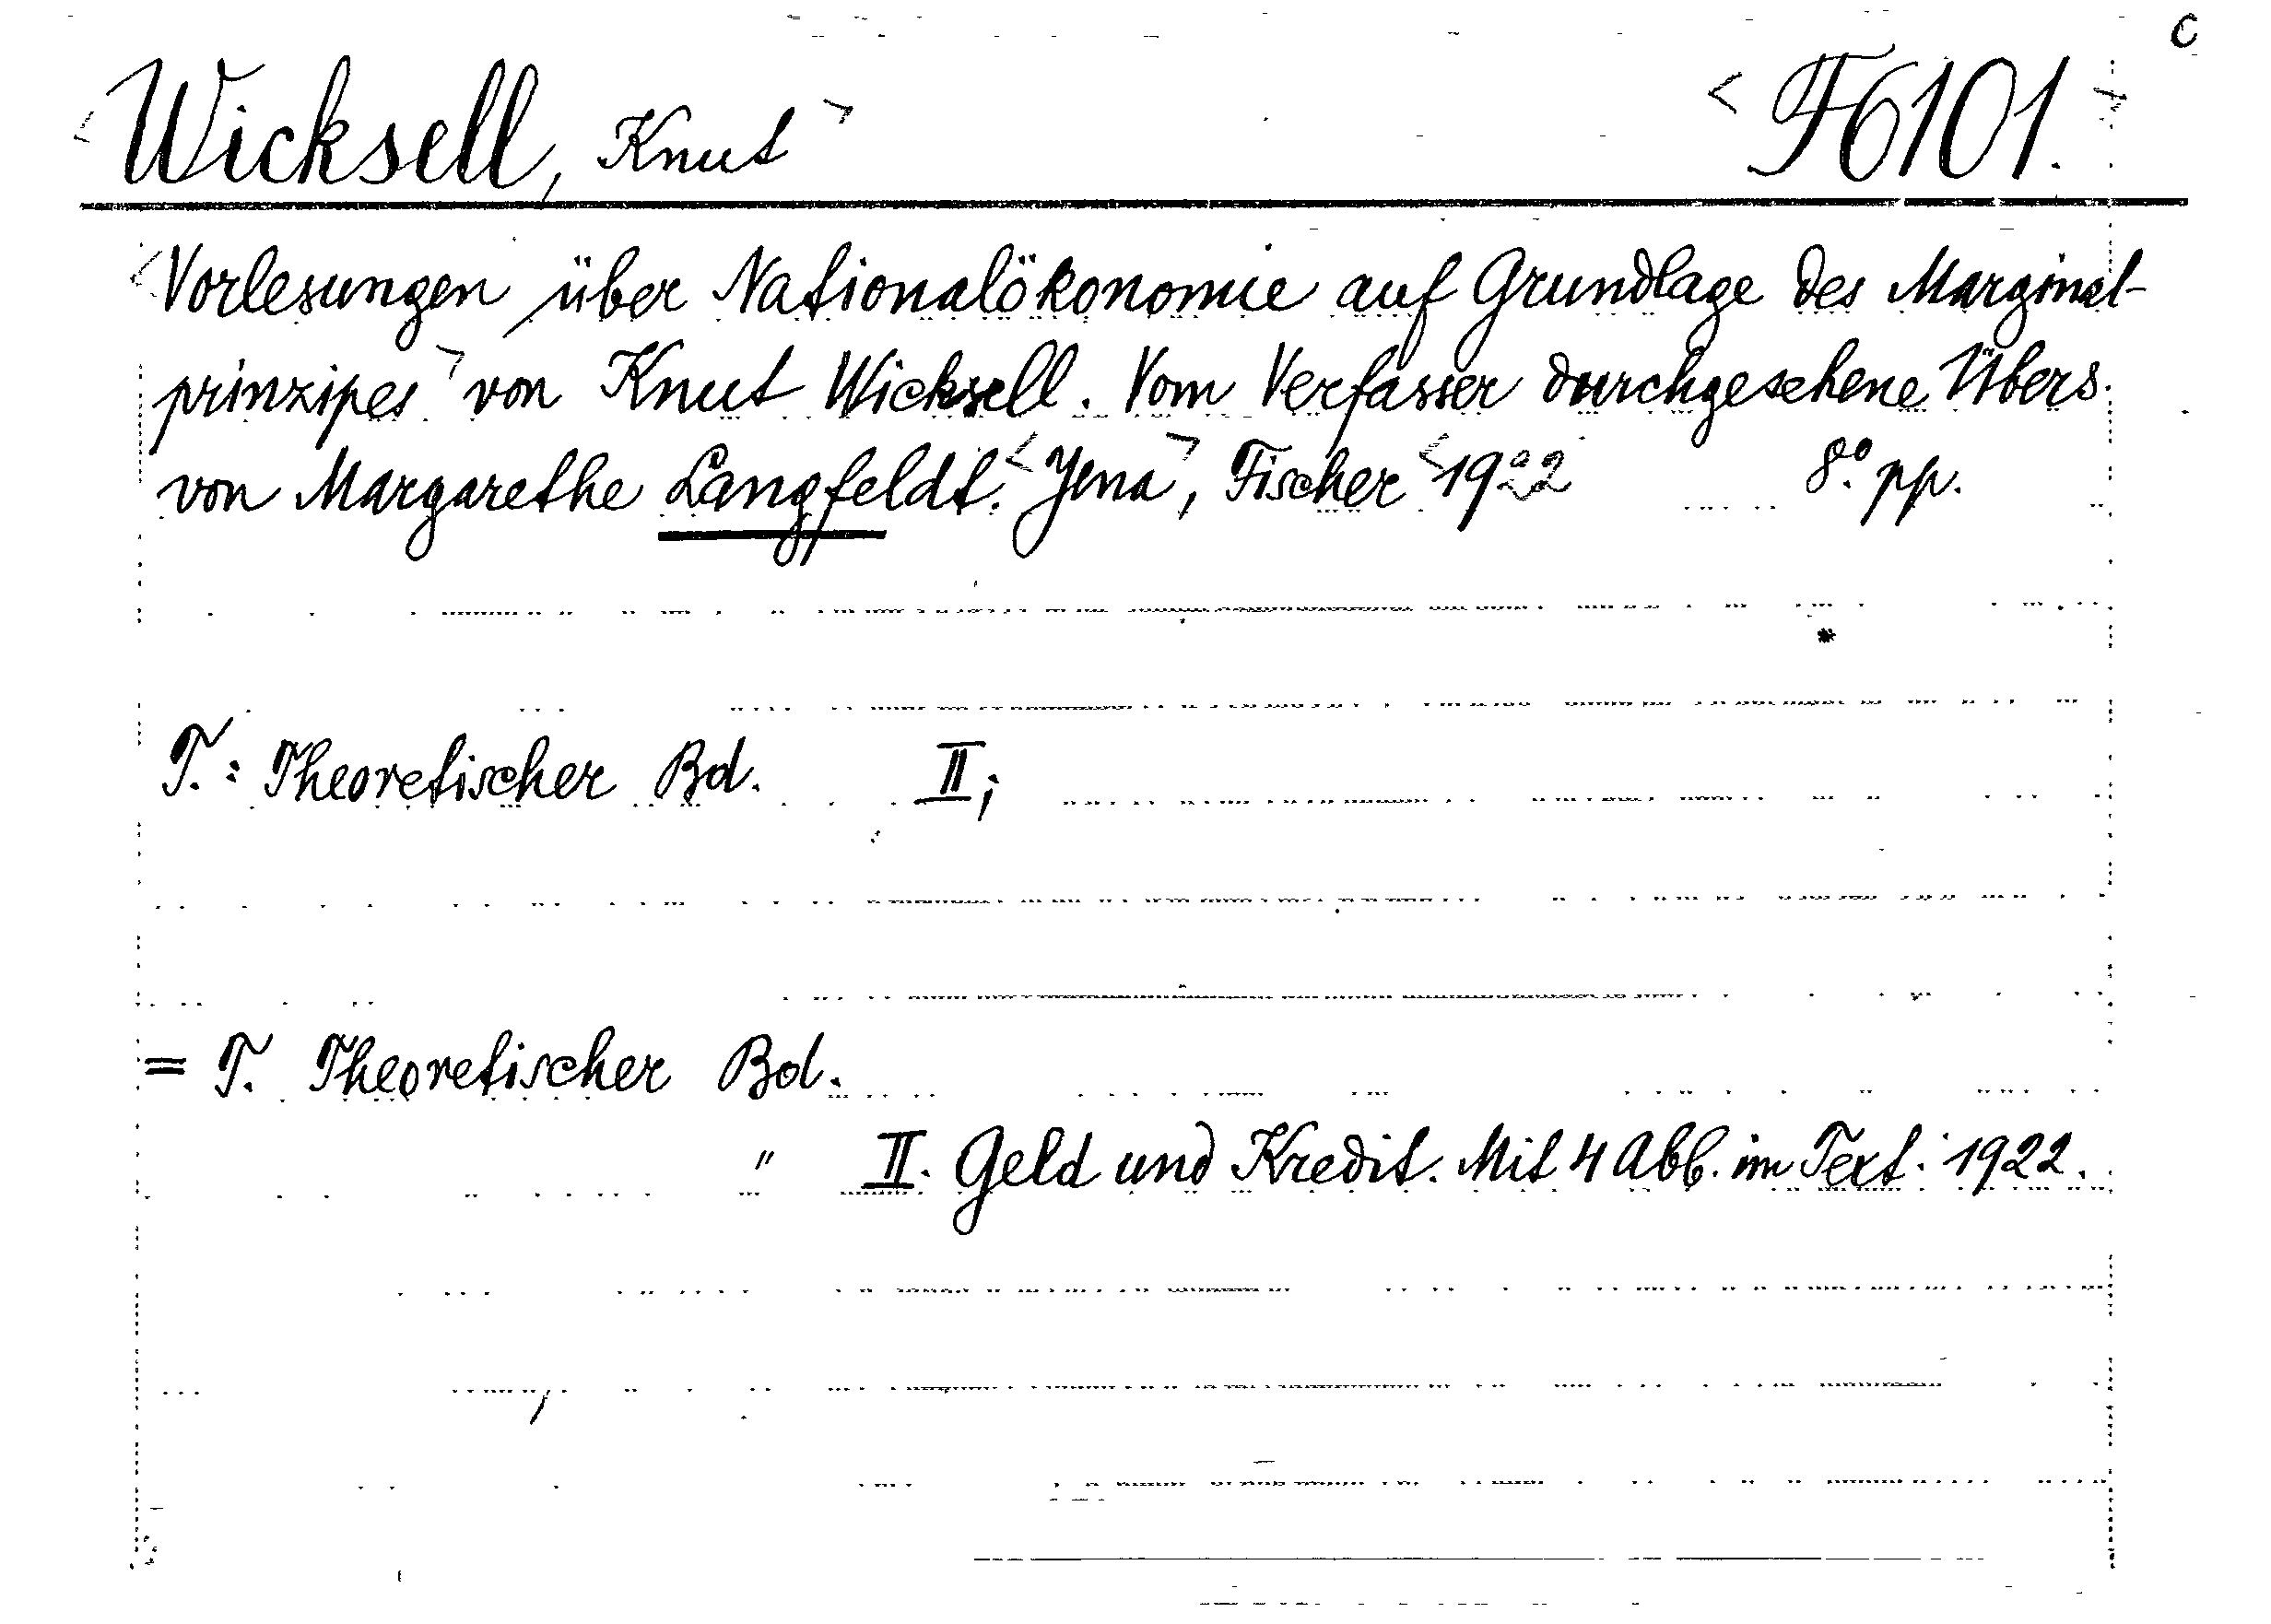 C
<Wicksell, Knut> <F6101.
<Vorlesungen über Nationalökonomie auf Grundlage des Marginal-
prinzipes> von Knut Wicksell. Vom Verfasser durchgesehene Übers.
von Margarethe Langfeldt. <Jena>, Fischer <1922 8° pp.
T.: Theoretischer Bd. II;
= T. Theoretischer Bd.
" II. Geld und Kredit. Mit 4 Abb. im Text. 1922.